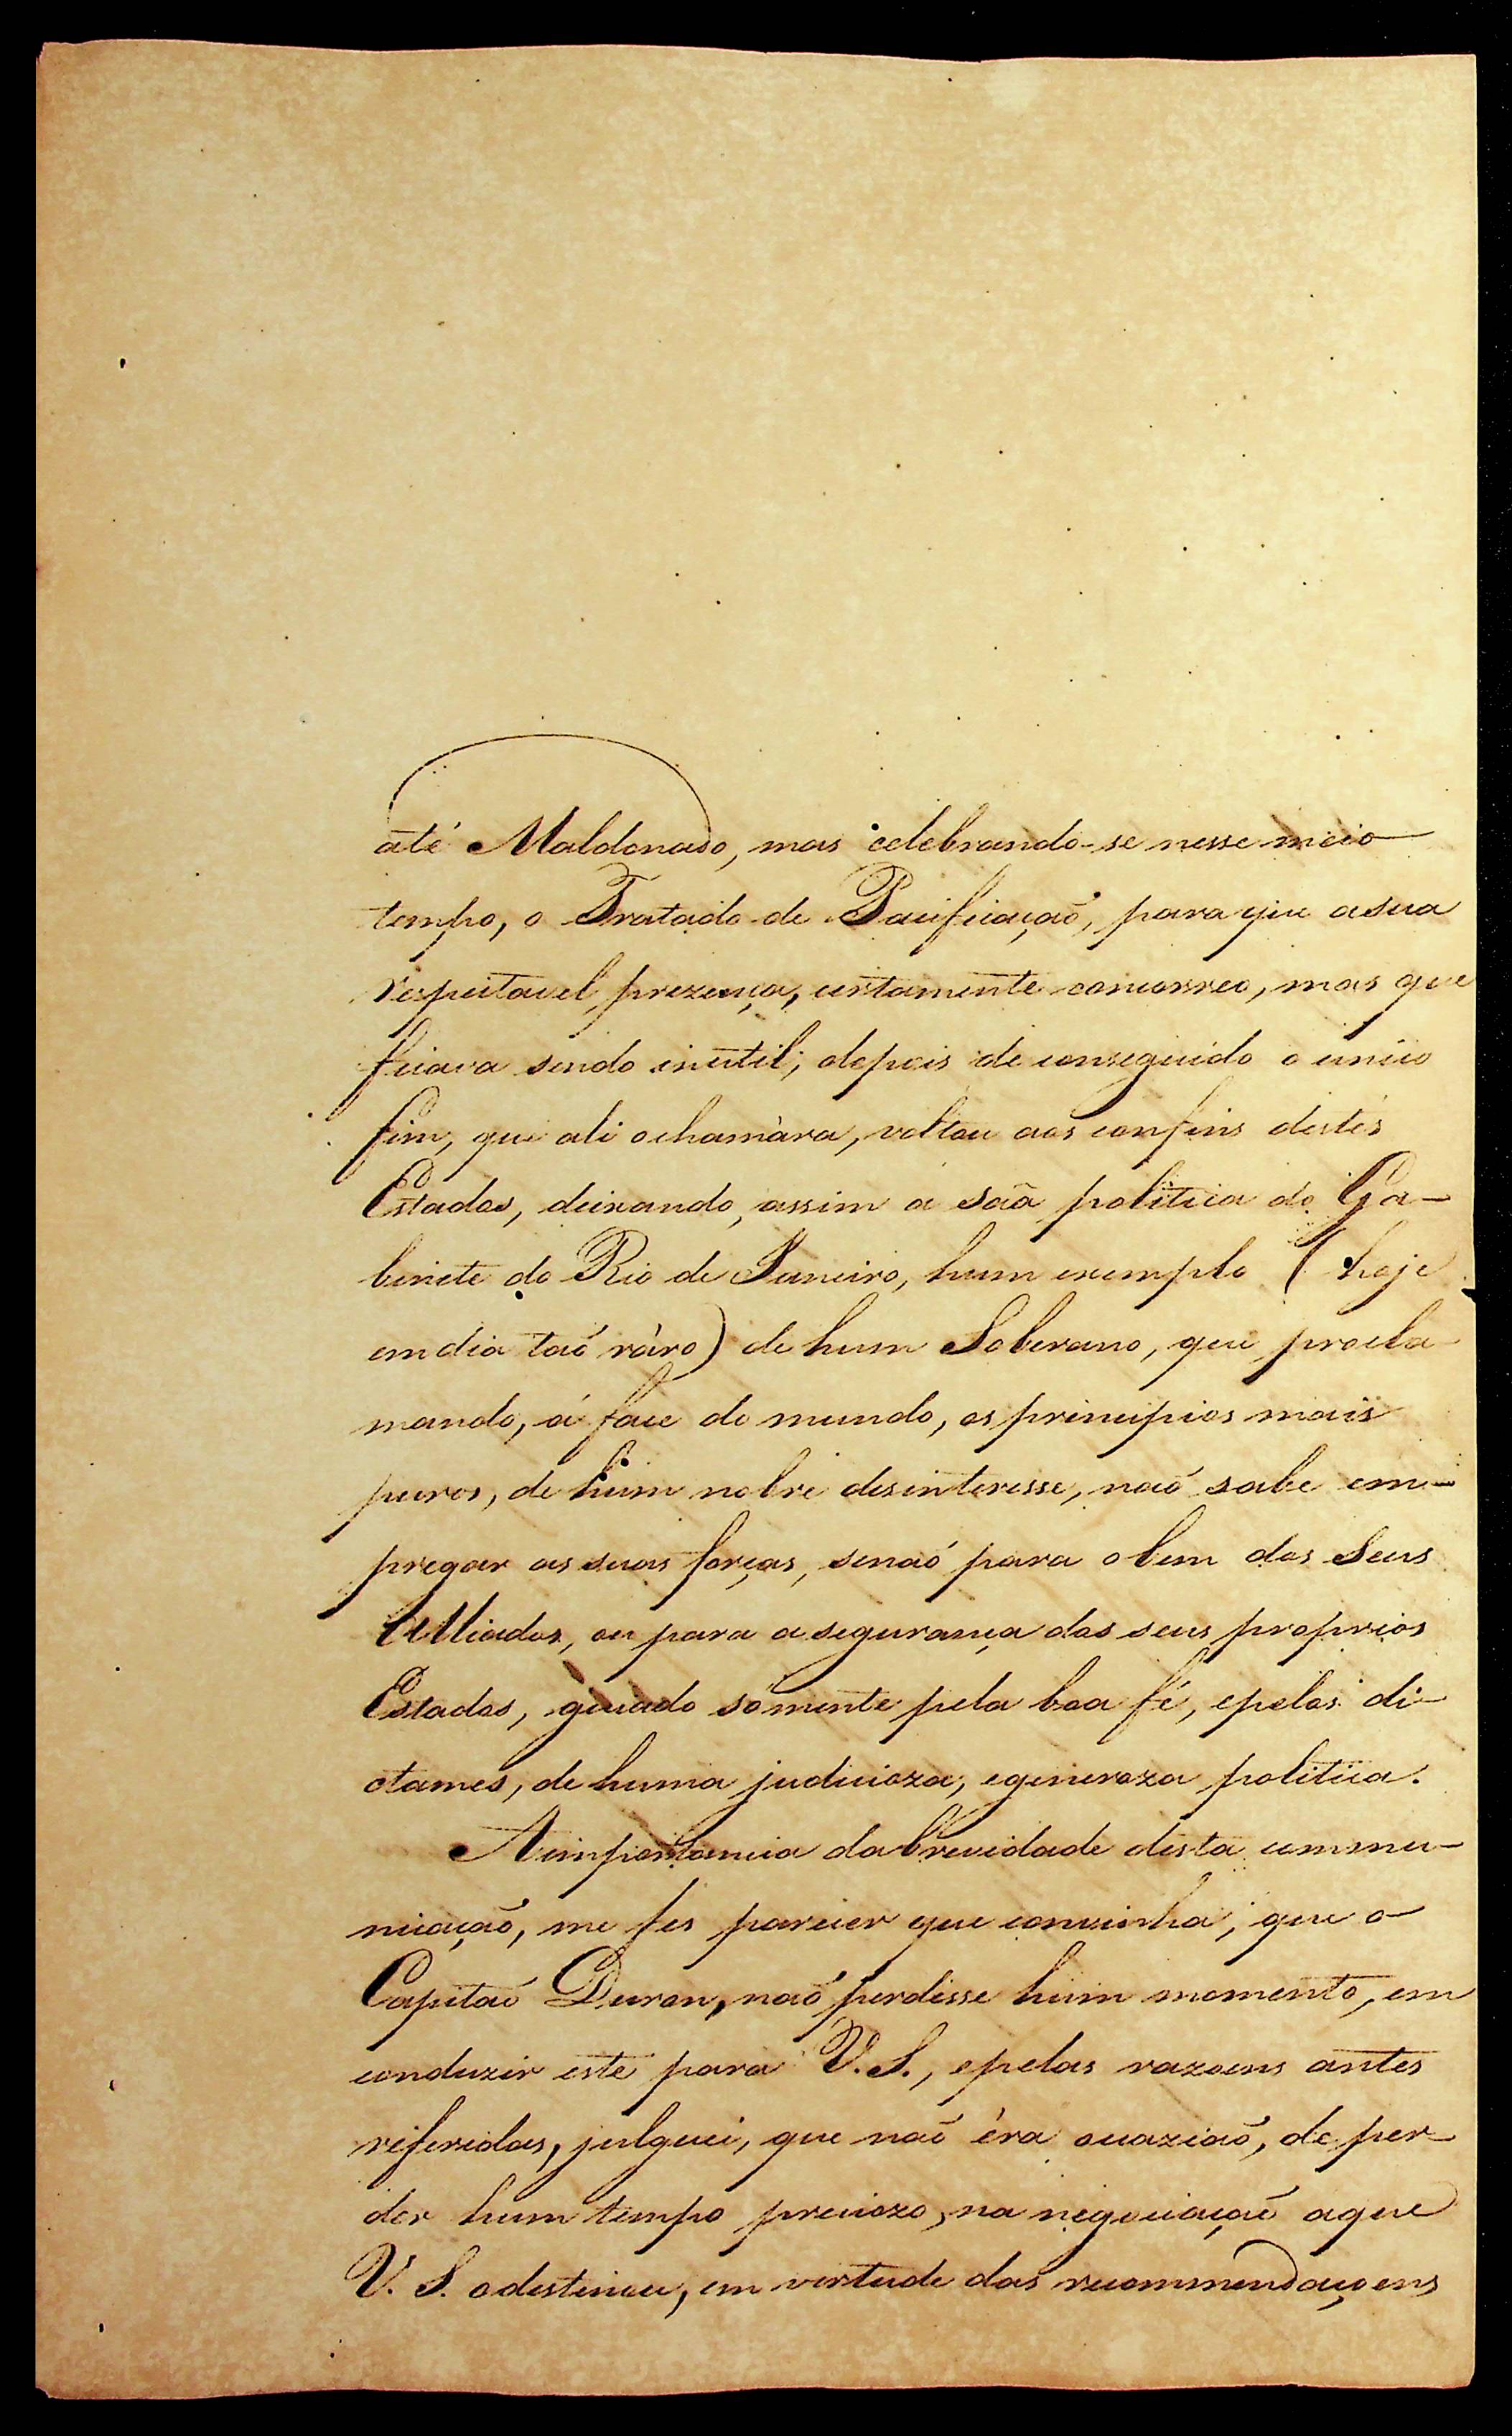 até Maldonado, mas celebrando-se nesse meio
tempo, o Tratado de Pacificaçaõ, para que a sua
respeitavel prezença, certamente concorreo, mas que
ficava sendo inutil, depois de conseguido o unico
fim, que ali o chamàra, voltou aos confins destes
Estados, deixando, assim a saã politica do Ga-
binete do Rio de Janeiro, hum exemplo (hoje
em dia taõ ràro) de hum Soberano, que procla
mando, á face do mundo, os principios mais
puros, de hum nobre desinteresse, naõ sabe em-
pregar as suas forças, senaõ para o bem dos Seus
Alliados, ou para a segurança dos seus proprios
Estados, guiado sómente pela boa fé, e pelos di-
ctames, de huma judicioza, e generoza politica.
A importancia da brevidade desta commu-
nicaçaõ, me fes parecer que convinha, que o
Capitaõ Duran, naõ perdesse hum momento, em
conduzir este para V. S., e pelas razoens antes
referidas, julguei, que naõ éra occaziaõ, de per
der hum tempo preciozo, na negociaçaõ a que
V. S. o destinou, em vertude das recommendaçoens